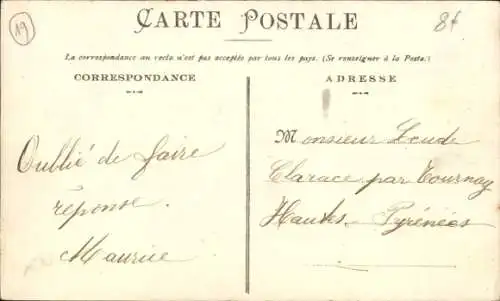 19
CARTE POSTALE
8f
La correspondance au recto n'est pas acceptée par tous les pays. (Se renseigner à la Poste.)
CORRESPONDANCE
ADRESSE
Oublié de faire
réponse.
Maurice
Monsieur
Clarace par Tournay
Hautes-Pyrénées